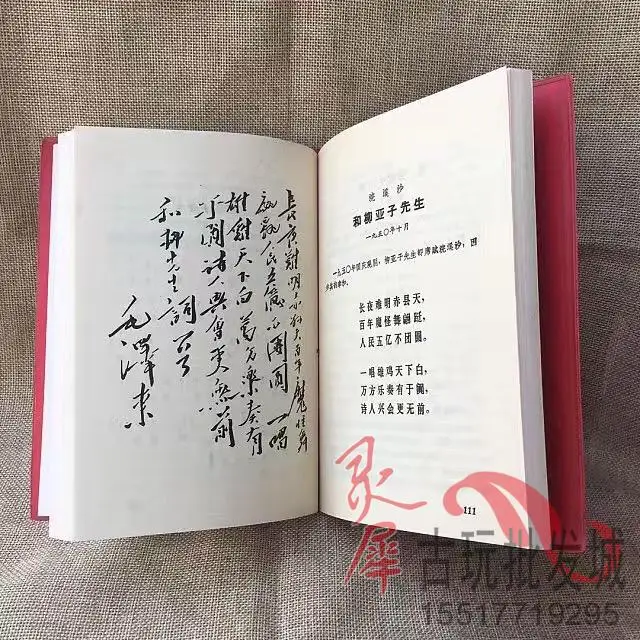 長夜難明赤縣天百年魔怪舞
翩人民五億不團圓一唱
雄鷄天下白萬方樂奏有
于闐詩人興會更無前
和柳先生詞
毛澤東
浣溪沙
和柳亚子先生
一九五〇年十月
一九五〇年国庆观剧，柳亚子先生即席赋浣溪沙，因
步其韵奉和。
长夜难明赤县天，
百年魔怪舞翩跹，
人民五亿不团圆。
一唱雄鸡天下白，
万方乐奏有于阗，
诗人兴会更无前。
111
灵犀
古玩批发城
15517719295